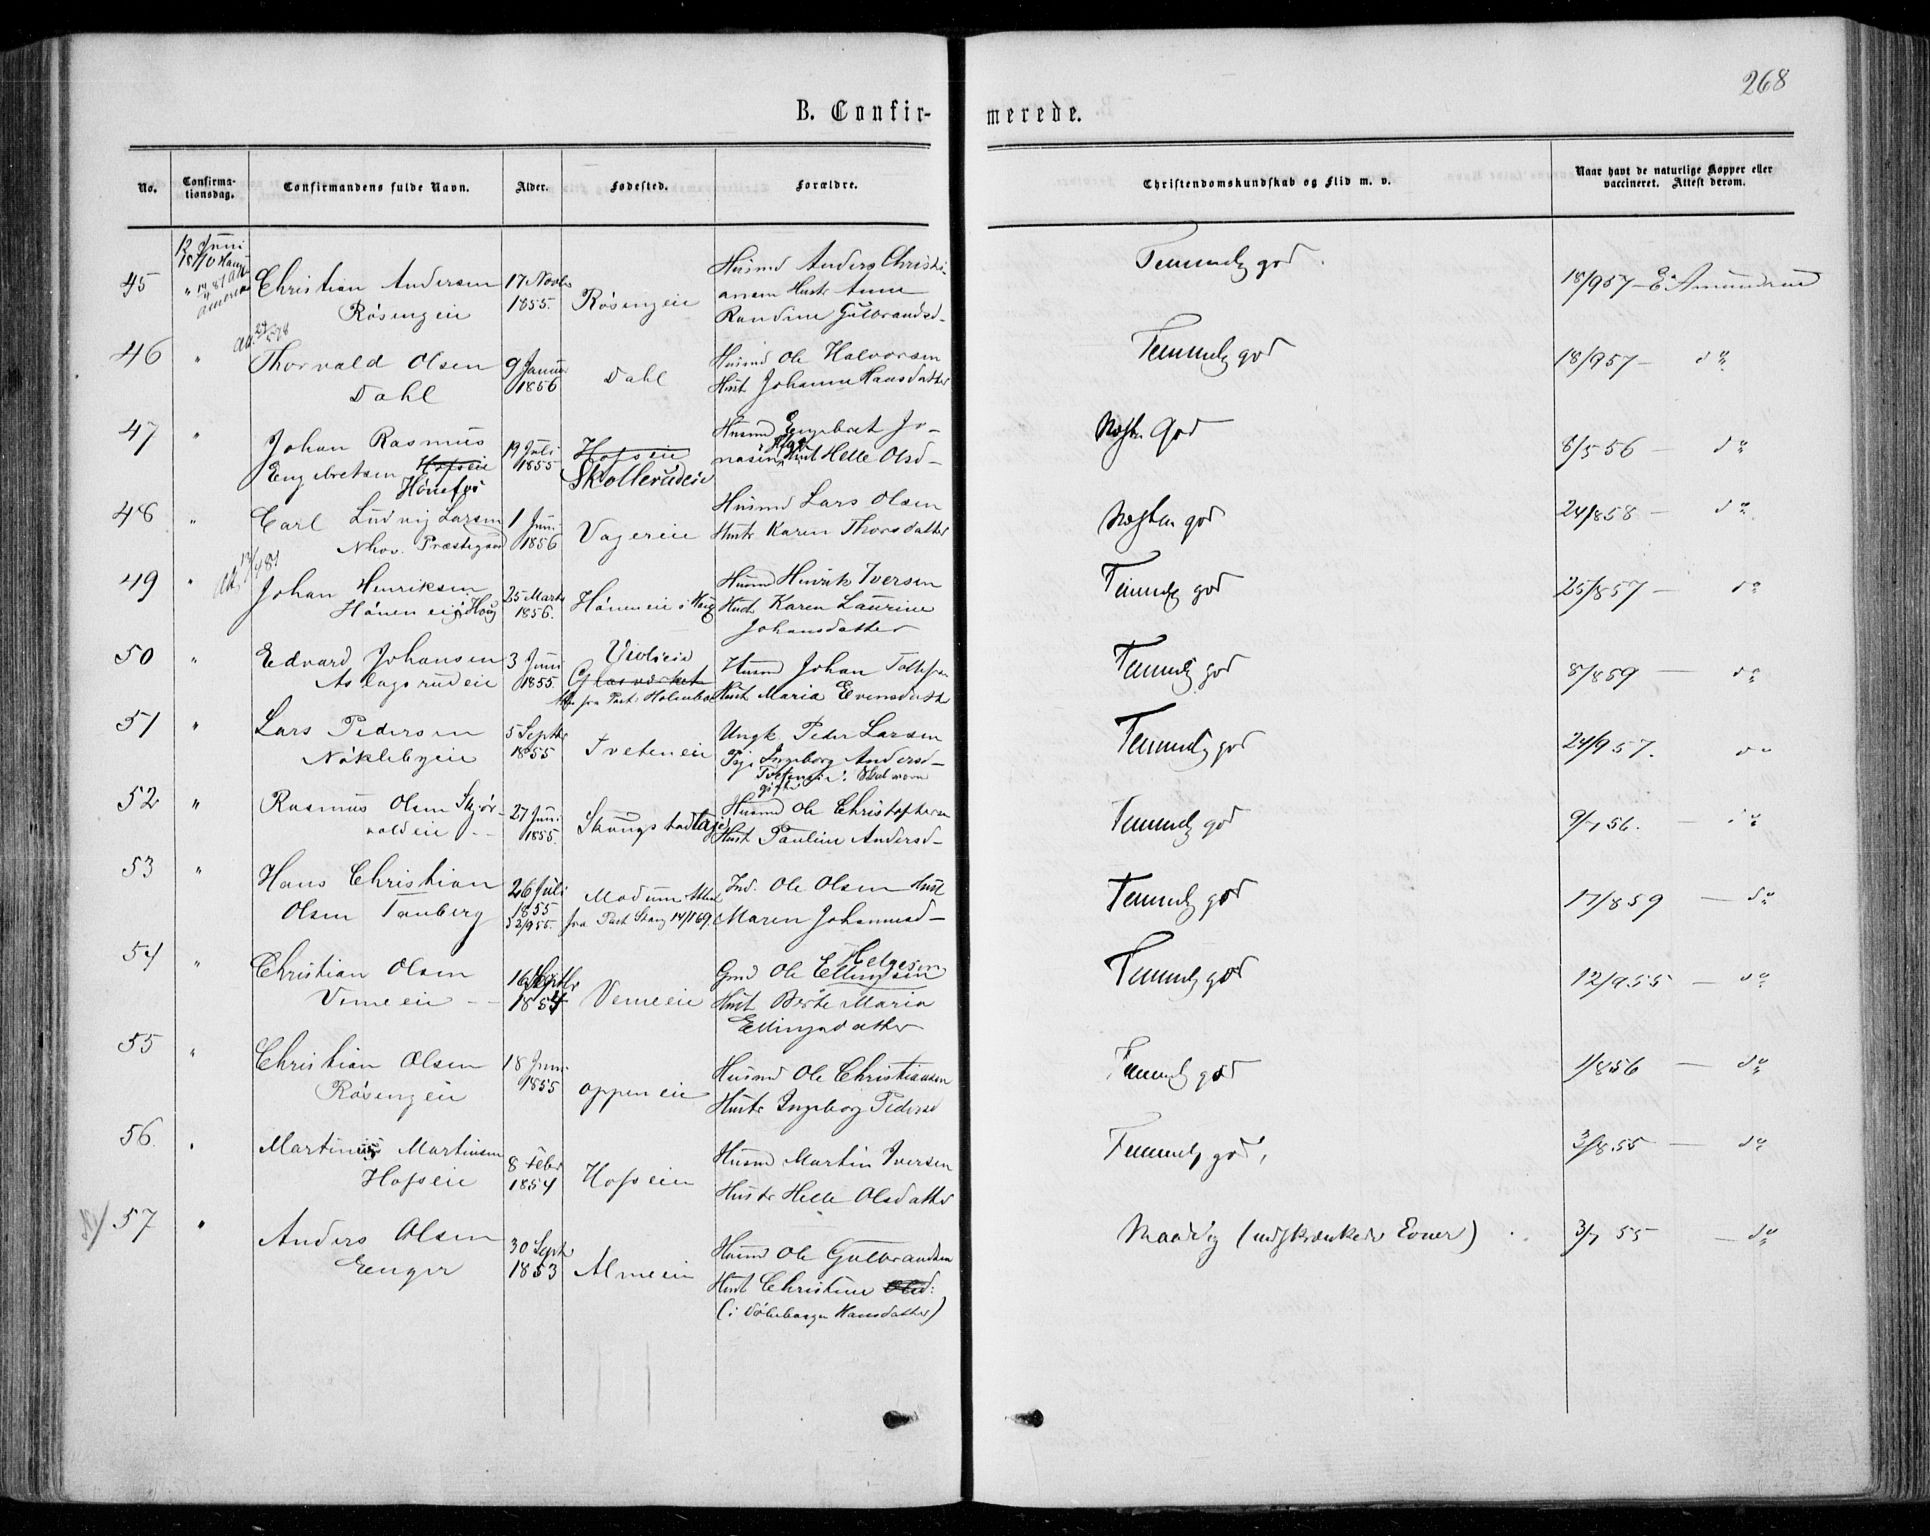 268
B. Confir-
merede.
No.
Confirma-
tionsdag.
Confirmandens fulde Navn.
Alder.
Fødested.
Forældre.
Christendomskundskab og Flid m. v.
Naar havt de naturlige Kopper eller
vaccineret. Attest derom.
12 Juni
45 Christian Andersen 17 Novbr Husmd Anders Christi-
Røsengeie 1855. Røsengeie ansen Hustr Anne
Randine Gulbrandsd-
Temmelig god. 18/9 57 - E. Amundsen
46 " Thorvald Olsen 9 Januar Husmd Ole Halvorsen
Dahl 1856 Dahl Hust. Johanne Hansdatter
Temmelig god 18/9 57 - do
47 " Johan Rasmus 19 Juli Hofseie Husmd Engebret Jo-
Engebretsen Hofseie 1855 Skollerudeie nasen Hust Helle Olsd-
Hønefos
Næsten God 8/5 56 - do
48 " Carl Ludvig Larsen 1 Juni Husmd Lars Olsen
Nhov. Præstegaard 1856 Vagereie Hustr Karen Thorsdatter
Næsten god 24/8 58 - do
49 " Johan Henriksen 25 Marts Husmd Henrik Iversen
Hønen eie i Houg 1856. Høneneie i Houg Hustr Karen Laurine
Johansdatter
Temmelig god 25/8 57 - do
50 " Edvard Johansen 3 Juni Husmd Johan Tollefsen
Aslagsrudeie 1855. Glasværket Hust Maria Evensdatter
fra Past. Holmboe
Temmelig god 8/8 59 - do
51 " Lars Pedersen 5 Septbr Ungk. Peder Larsen
Nøklebyeie 1855 Tveteneie Pige Ingeborg Andersd-
Temmelig god 24/9 57. do
52 " Rasmus Olsen Skjør- 27 Juni Husmd Ole Christophersen
voldeie - - 1855. Hust Pauline Andersd-
Temmelig god 9/7 56. - do
53 " Hans Christian 26 Juli Modum Ind. Ole Olsen Hust
Olsen Tanberg 1855 fra Past 14/1 69. Maren Johannesd-
Temmelig god 17/8 59 - do
54 " Christian Olsen 16 Septbr Gmd Ole Ellingsen Helgesen
Vemeeie - - 1854 Vemeeie Hust Berte Maria
Ellingsdatter
Temmelig god 12/9 55 - do
55 " Christian Olsen 18 Juni Husmd Ole Christiansen
Røsengeie 1855 Oppeneie Hustr Ingeborg Pedersd
Temmelig god 1/8 56 - do
56. " Martinius Martinsen 8 Febr Husmd Martin Iversen
Hofseie 1854 Hofseie Hustr Helle Olsdatter
Temmelig god, 3/8 55 - do
57 " Anders Olsen 30 Septr Husmd Ole Gulbrandsen
Enger 1853 Almeeie Hust Christine Olsd:
Hansdatter)
Maadelig (indskrænkede Evner) 3/7 55 - do